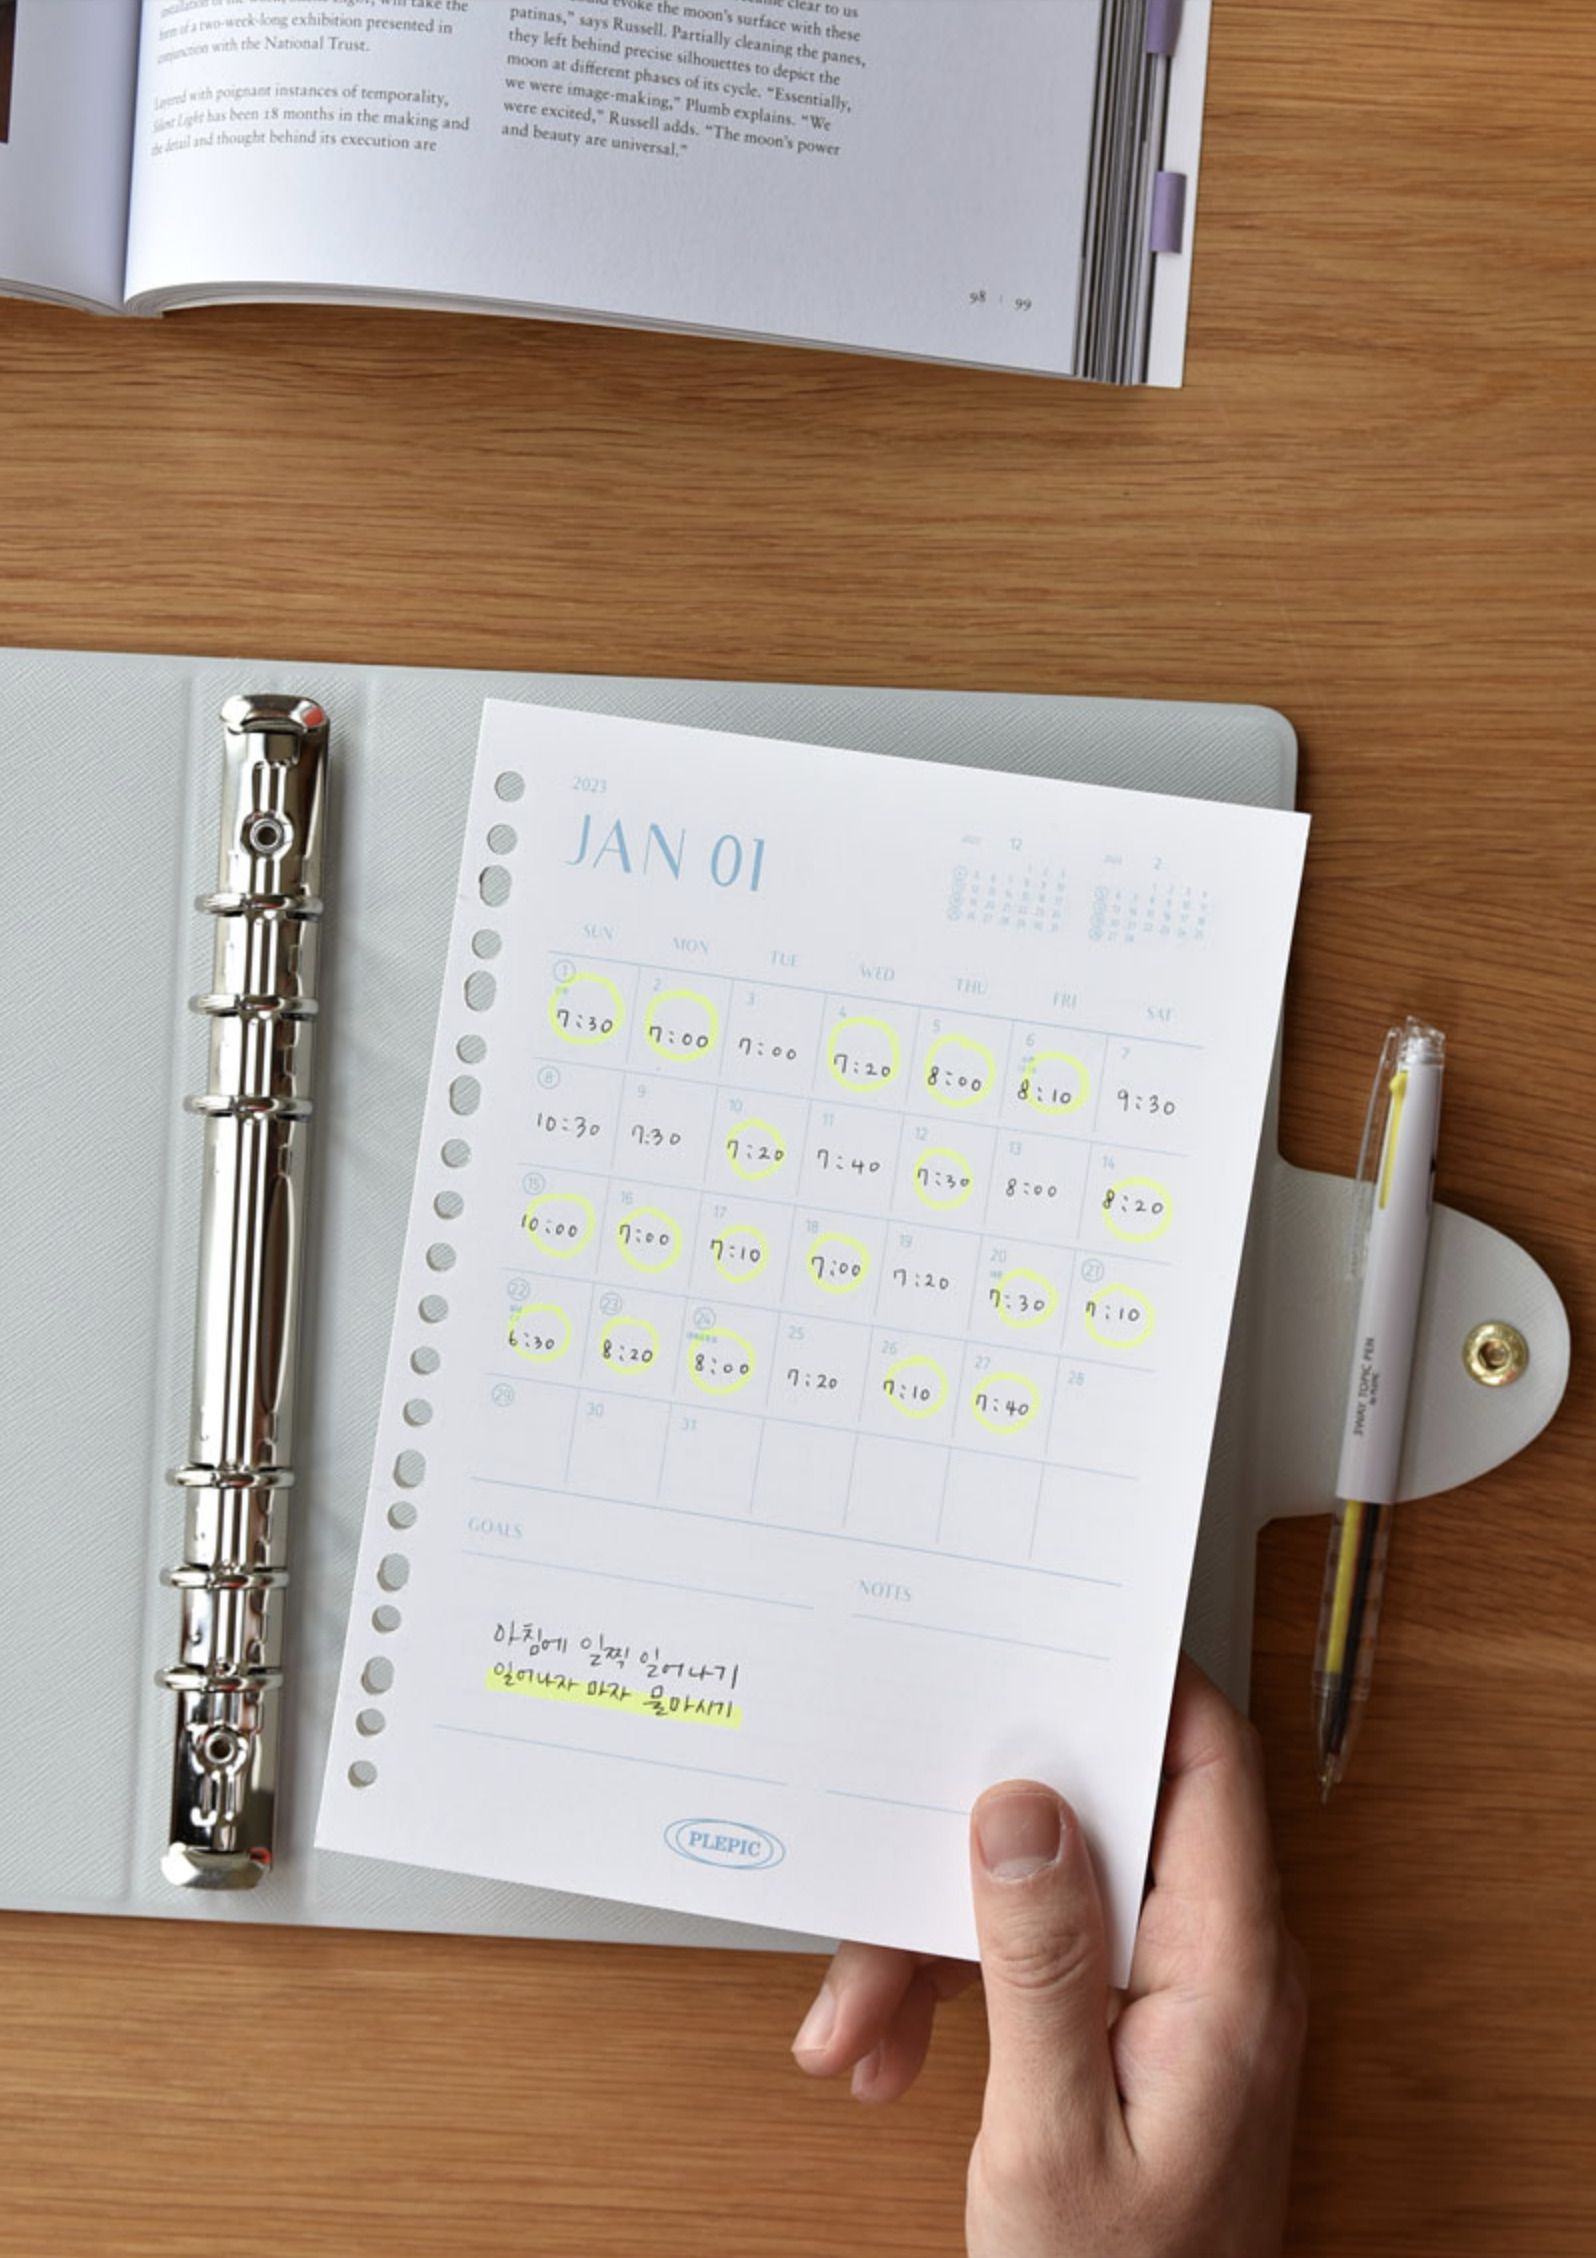 form of a two-week-long exhibition presented in
conjunction with the National Trust.
Layered with poignant instances of temporality,
Silent Light has been 18 months in the making and
the detail and thought behind its execution are
clear to us
evoke the moon's surface with these
patinas," says Russell. Partially cleaning the panes,
they left behind precise silhouettes to depict the
moon at different phases of its cycle. "Essentially,
we were image-making," Plumb explains. "We
were excited," Russell adds. "The moon's power
and beauty are universal."
98 | 99
2023
JAN 01
12
2
SUN MON TUE WED THU FRI SAT
1 2 3 4 5 6 7
7:30 7:00 7:00 7:20 8:00 8:10 9:30
8 9 10 11 12 13 14
10:30 7:30 7:20 7:40 7:30 8:00 8:20
15 16 17 18 19 20 21
10:00 7:00 7:10 7:00 7:20 7:30 7:10
22 23 24 25 26 27 28
6:30 8:20 8:00 7:20 7:10 7:40
29 30 31
GOALS
NOTES
아침에 일찍 일어나기
일어나자 마자 물마시기
PLEPIC
3WAY TOPIC PEN